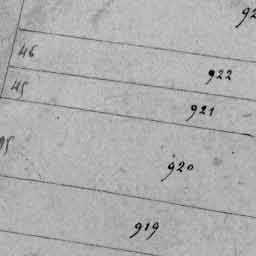 46
922
45
921
920
919